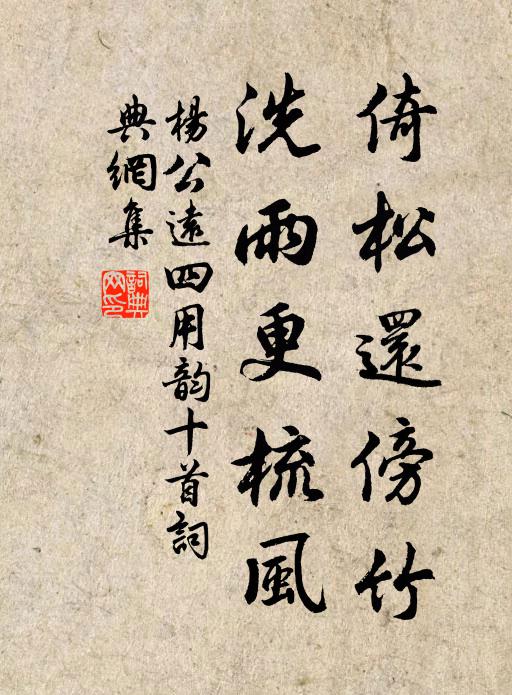 倚松還傍竹
洗雨更梳風
楊公遠四用韵十首詞
典網集
詞典
网印